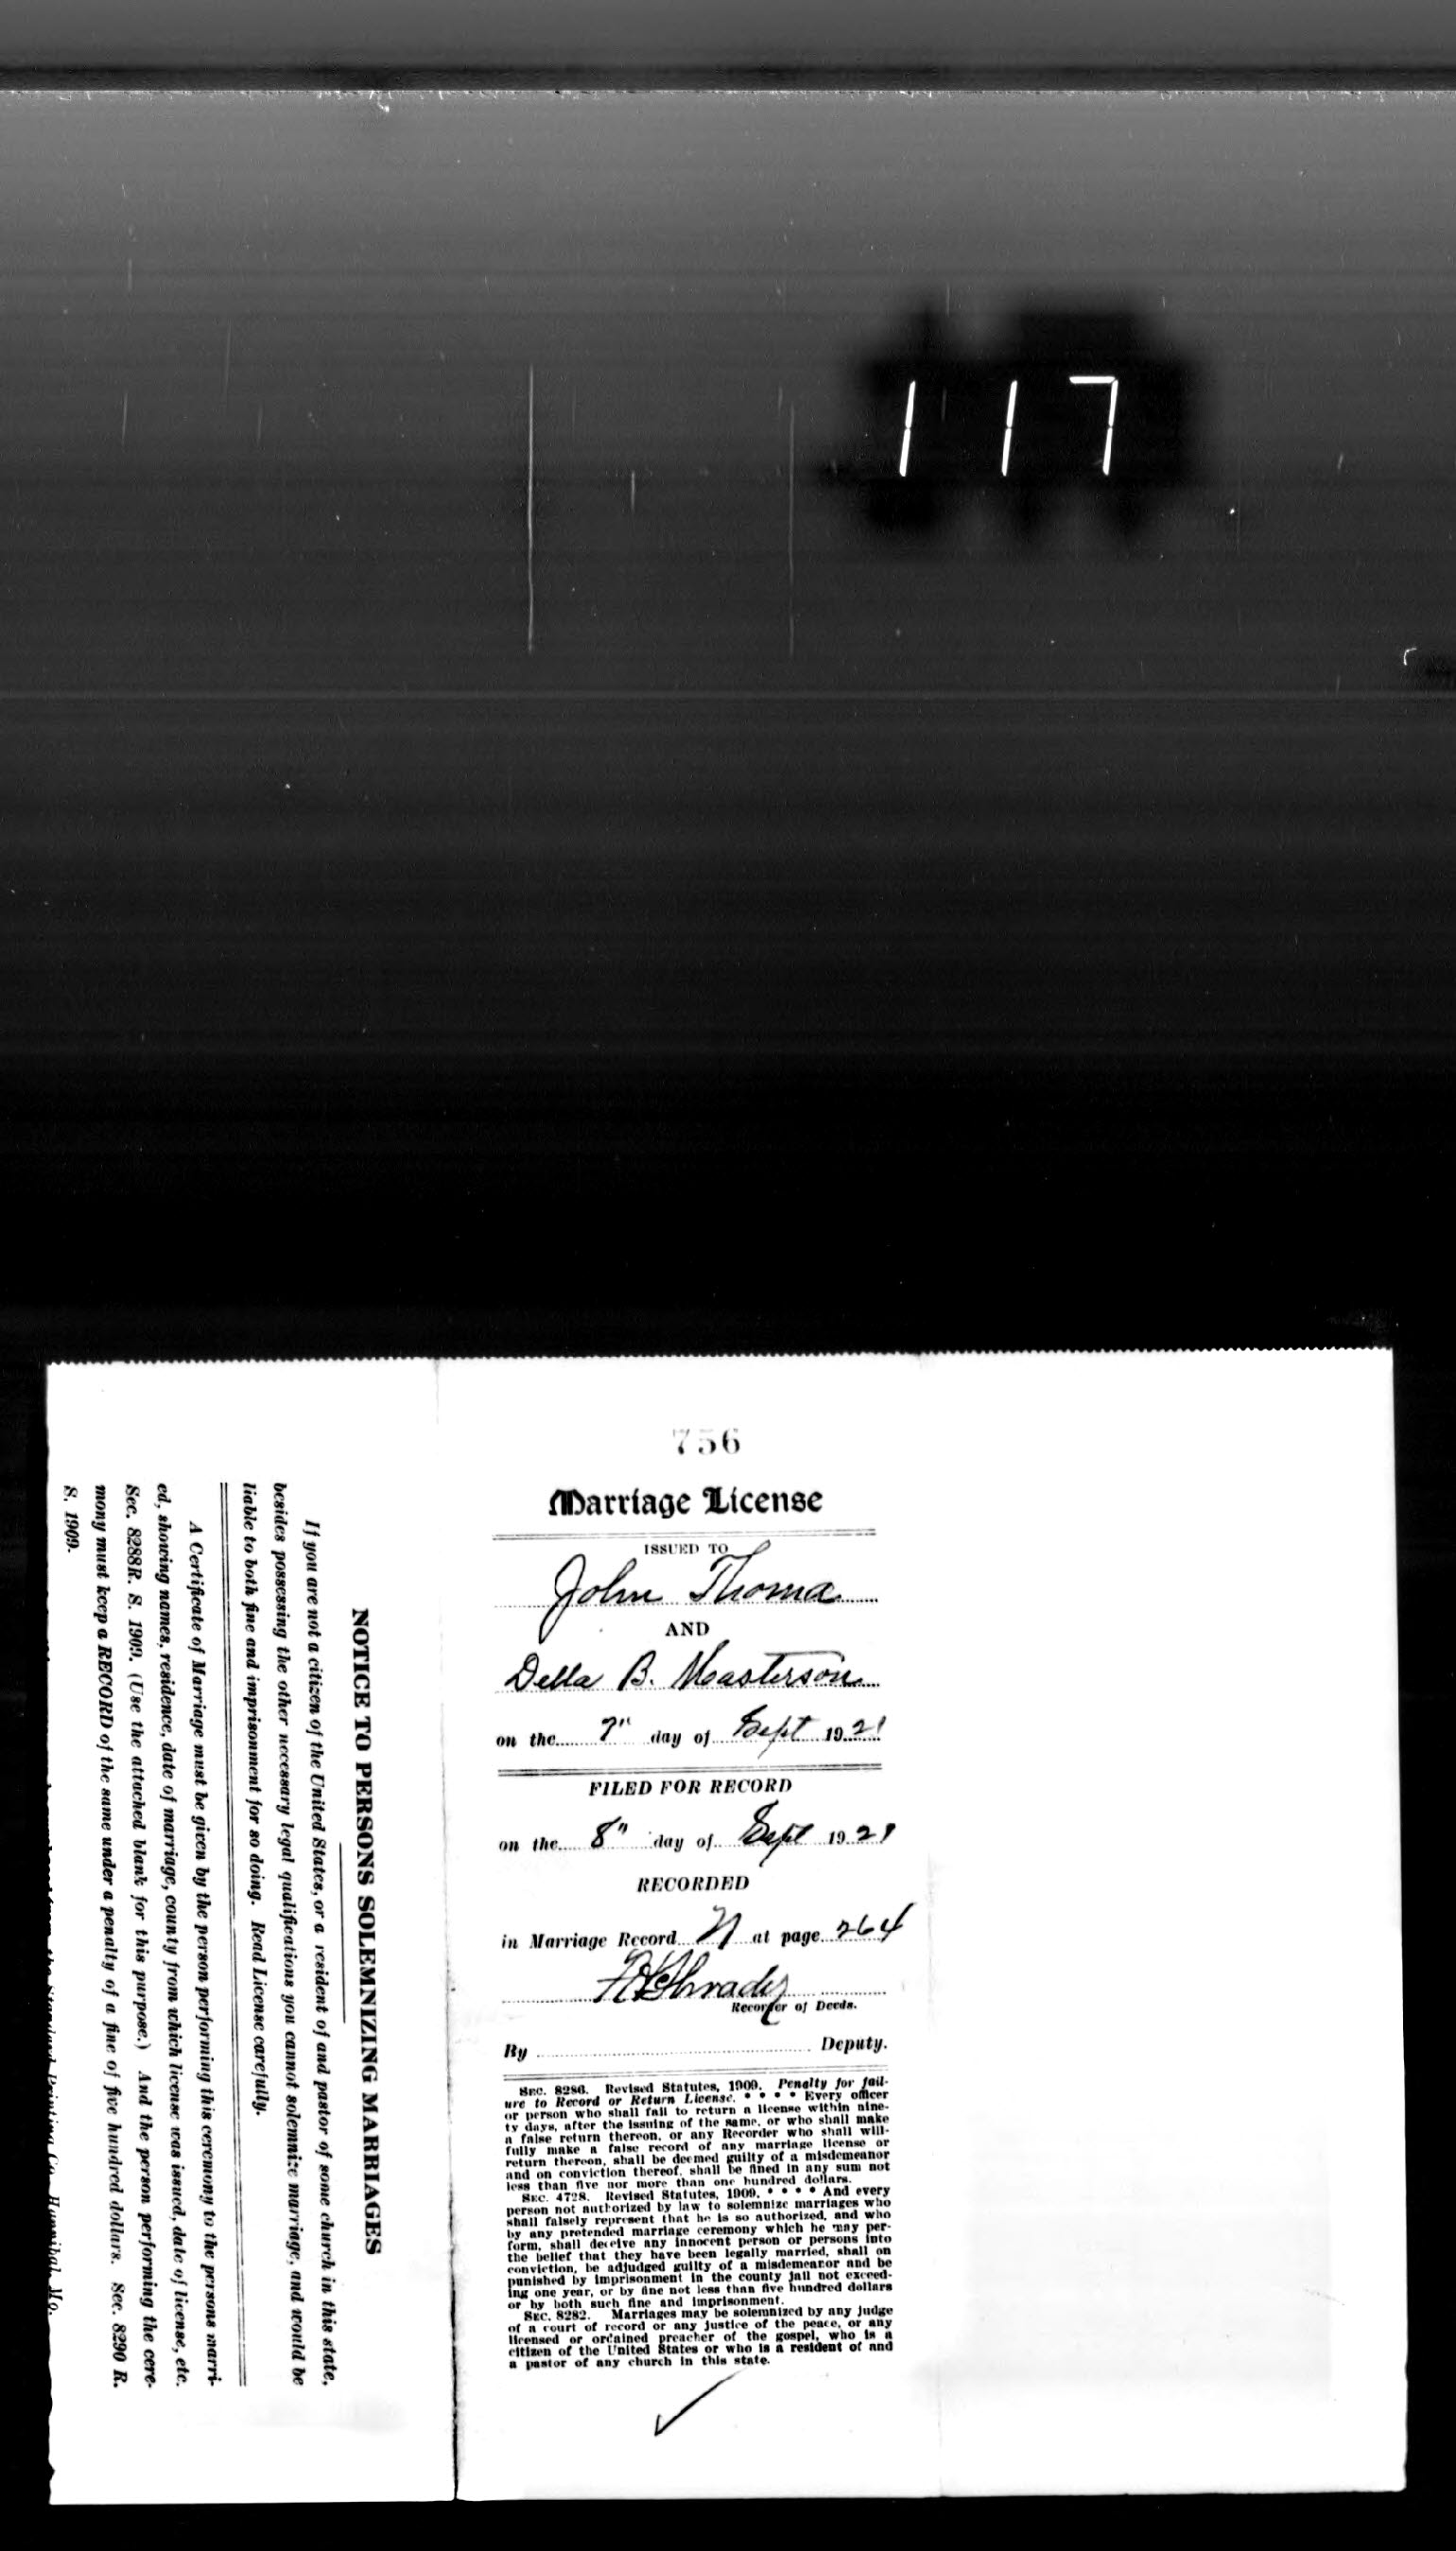 117
756
Marriage License
ISSUED TO
John Thoma
AND
Della B. Masterson
on the 7" day of Sept 1921
FILED FOR RECORD
on the 8" day of Sept 1921
RECORDED
in Marriage Record at page 264
Recorder of Deeds.
By Deputy.
SEC. 8286. Revised Statutes, 1909. Penalty for fail-
ure to Record or Return License. * * * * Every officer
or person who shall fail to return a license within nine-
ty days, after the issuing of the same, or who shall make
a false return thereon, or any Recorder who shall will-
fully make a false record of any marriage license or
return thereon, shall be deemed guilty of a misdemeanor
and on conviction thereof, shall be fined in any sum not
less than five nor more than one hundred dollars.
SEC. 4728. Revised Statutes, 1909. * * * * And every
person not authorized by law to solemnize marriages who
shall falsely represent that he is so authorized, and who
by any pretended marriage ceremony which he may per-
form, shall deceive any innocent person or persons into
the belief that they have been legally married, shall on
conviction, be adjudged guilty of a misdemeanor and be
punished by imprisonment in the county jail not exceed-
ing one year, or by fine not less than five hundred dollars
or by both such fine and imprisonment.
SEC. 8282. Marriages may be solemnized by any judge
of a court of record or any justice of the peace, or any
licensed or ordained preacher of the gospel, who is a
citizen of the United States or who is a resident of and
a pastor of any church in this state.
NOTICE TO PERSONS SOLEMNIZING MARRIAGES
If you are not a citizen of the United States, or a resident of and pastor of some church in this state,
besides possessing the other necessary legal qualifications you cannot solemnize marriage, and would be
liable to both fine and imprisonment for so doing. Read License carefully.
A Certificate of Marriage must be given by the person performing this ceremony to the persons marri-
ed, showing names, residence, date of marriage, county from which license was issued, date of license, etc.
Sec. 8288R. S. 1909. (Use the attached blank for this purpose.) And the person performing the cere-
mony must keep a RECORD of the same under a penalty of a fine of five hundred dollars. Sec. 8290 R.
S. 1909.
the Standard Printing Co. Hannibal, Mo.